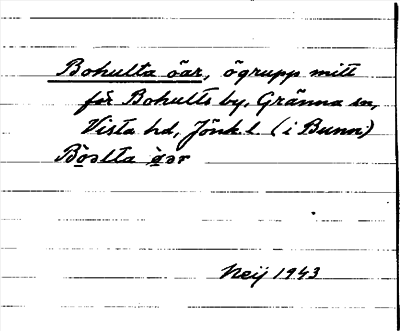 Bohulta öar, ögrupp mitt
för Bohults by, Gränna sn,
Vista hd, Jönk. l. (i Bunn)
öar
Neij 1943